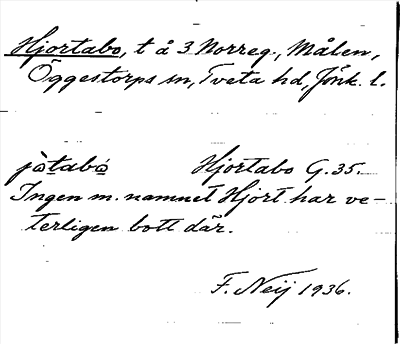 Hjortabo, t å 3 Norreg., Målen,
Öggestorps sn, Tveta hd, Jönk. l.
jòtabó Hjortabo G. 35.
Ingen m. namnet Hjort har ve-
terligen bott där.
F. Neij 1936.